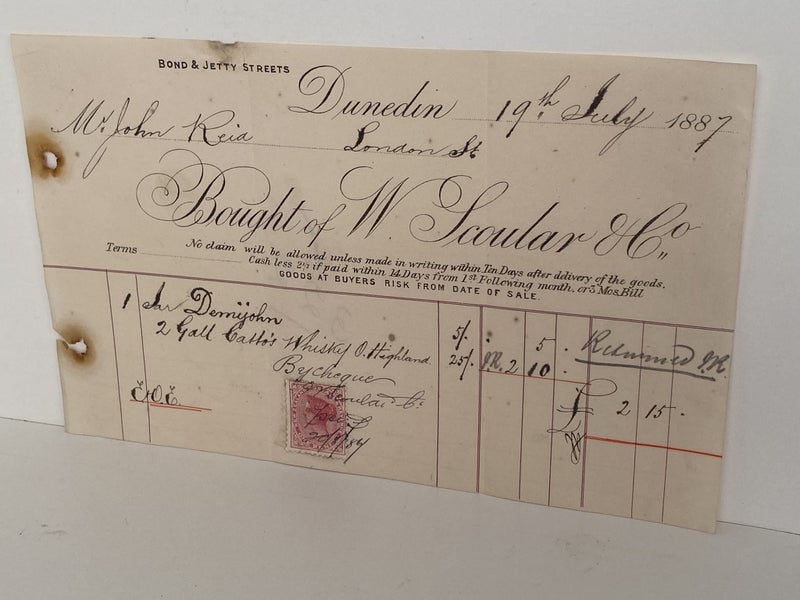 BOND & JETTY STREETS
Dunedin 19th July 1887
Mr. John Reid
London St
Bought of W. Scoular & Co.
Terms No claim will be allowed unless made in writing within Ten Days after delivery of the goods.
Cash less 2½ if paid within 14 Days from 1st Following month, or 3 Mos. Bill
GOODS AT BUYERS RISK FROM DATE OF SALE.
1 Jar Demijohn 5/. . 5 . Returned J.R.
2 Gall Catto's Whisky O. Highland 25/. J.R. 2 10 .
By cheque
Scoular Co
£ 2 15 .
E.O.E.